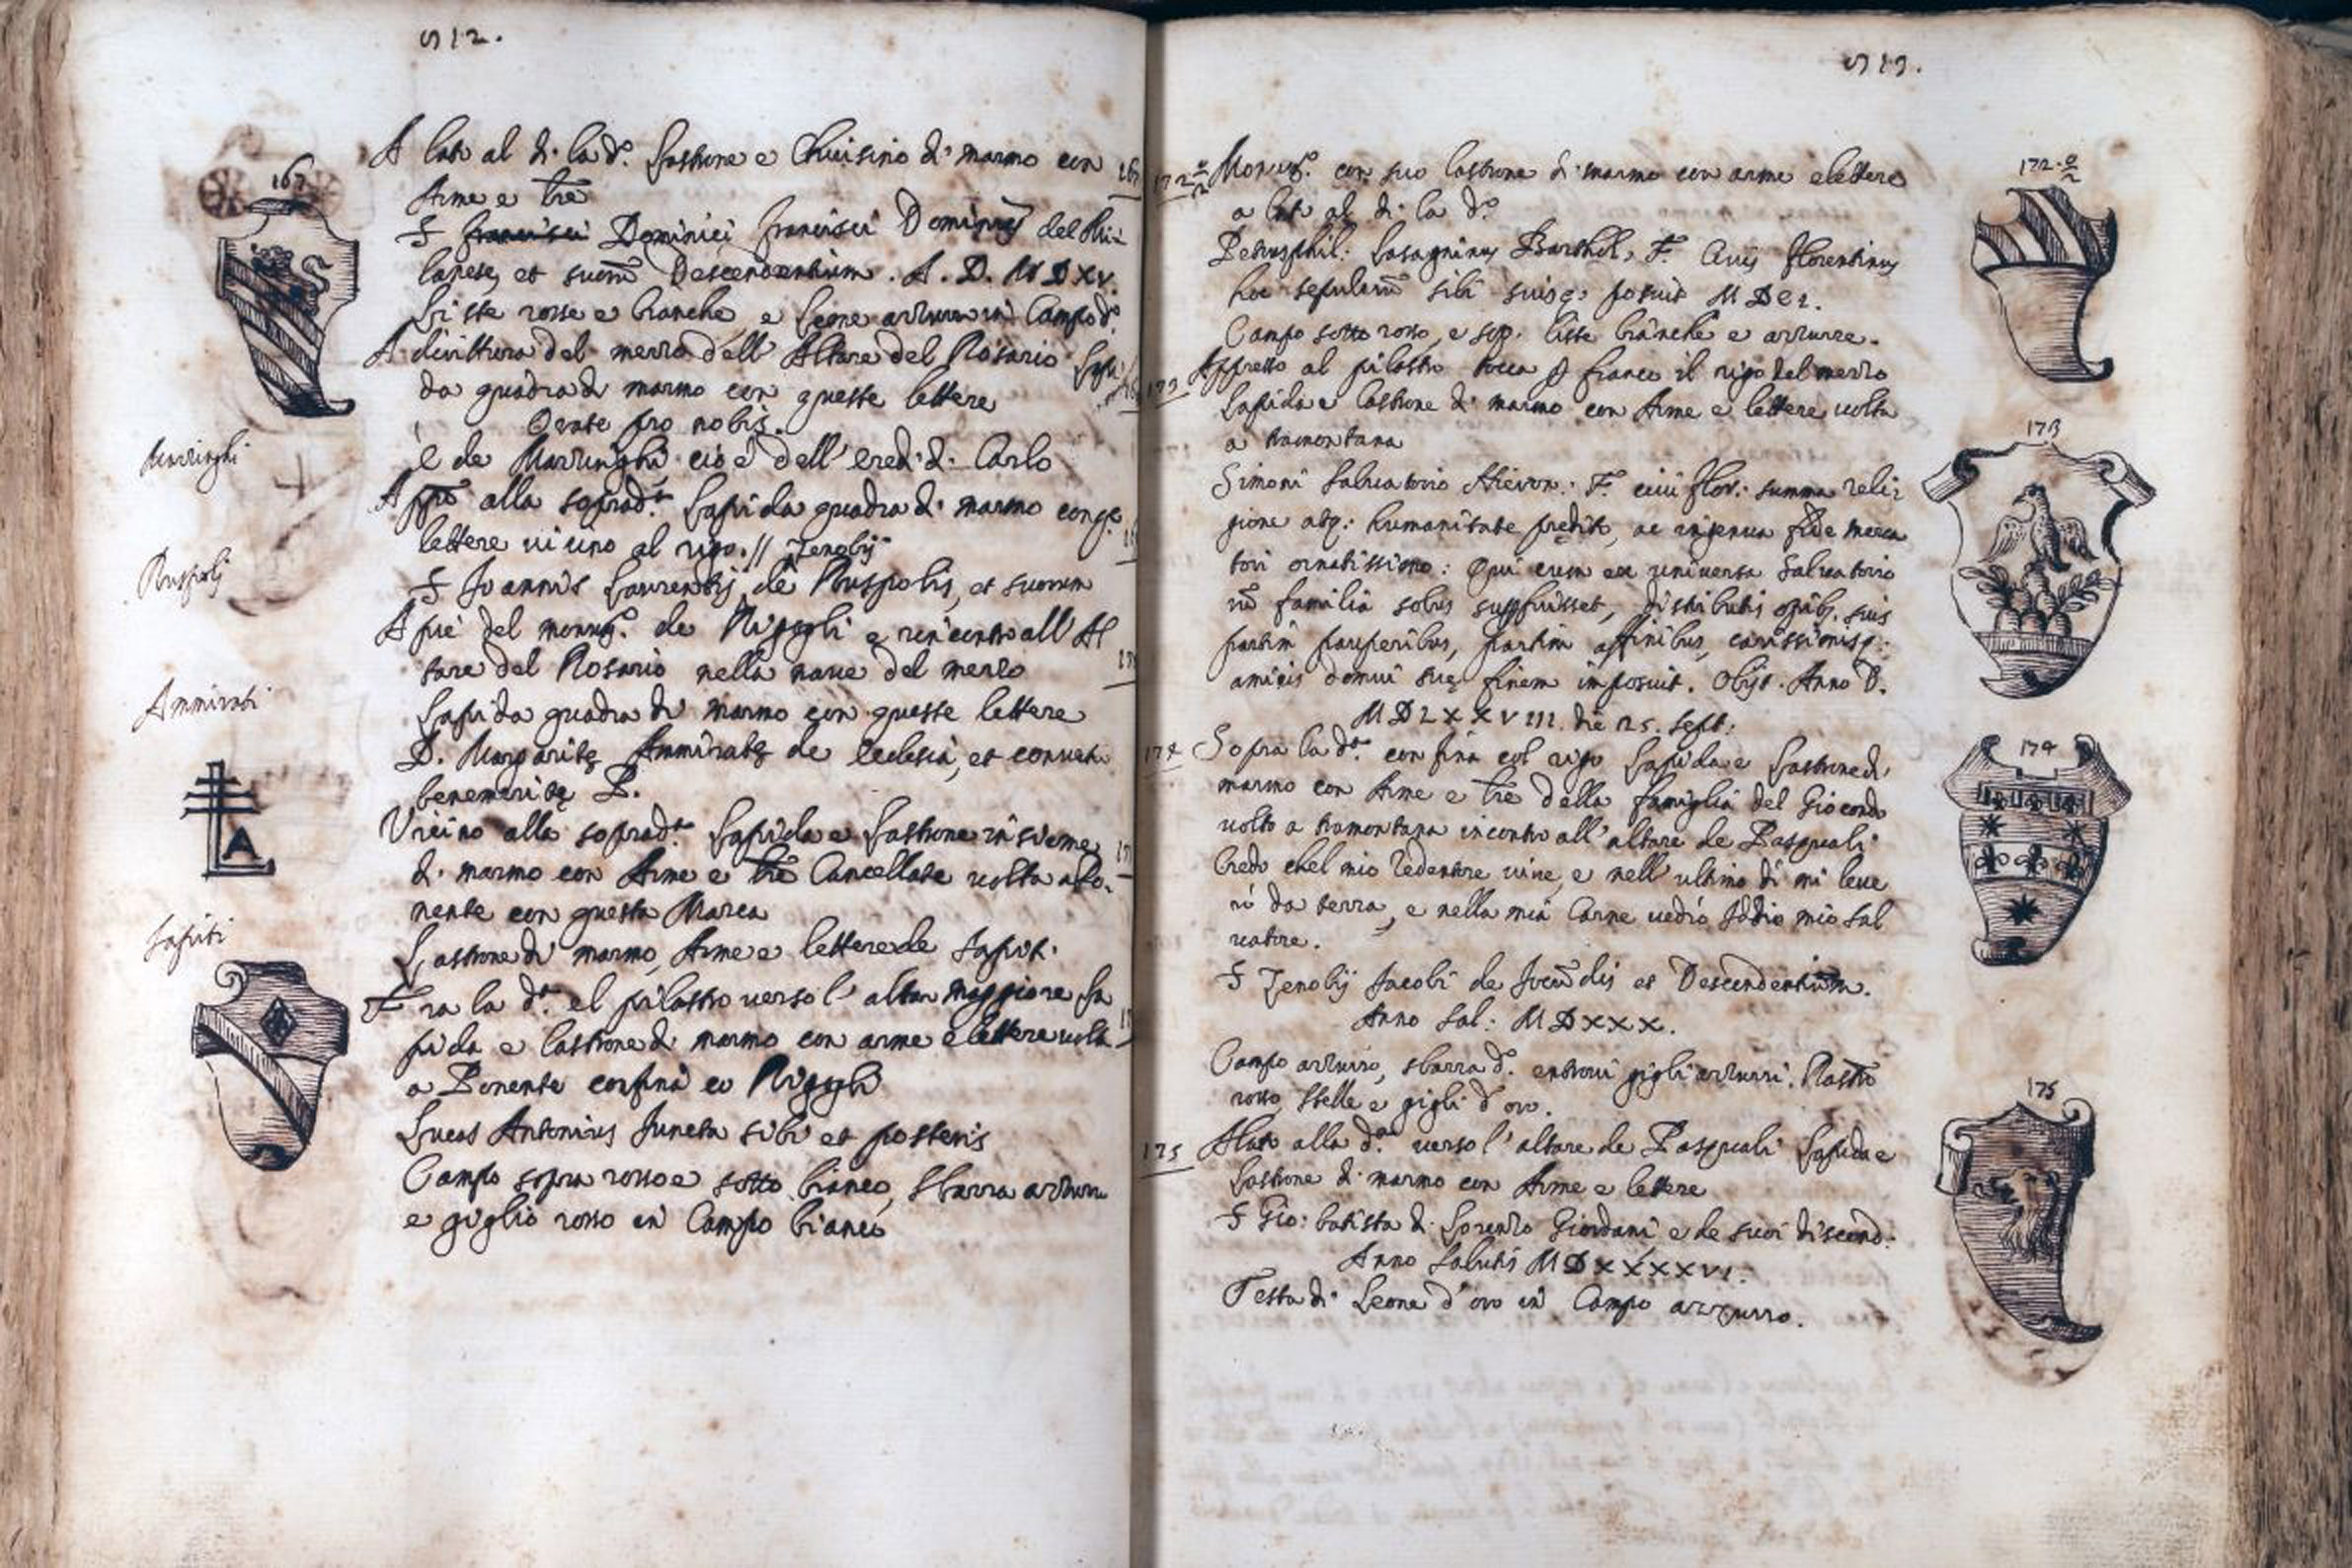 512.
167
A lato al di là dº. Lastrone e Chiusino di marmo con
Arme e lre
S Francisci Dominici Francisci Dominici del
et suoru Descendentium. A. D. MDXV.
Liste rosse e bianche, e Leone azzurro in Campo dº.
A dirittura del mezzo dell' Altare del Rosario Lapi
da quadra di marmo con queste lettere
Orate pro nobis.
Maringhi
è de Maringhi cioè dell' eredi di Carlo
Appo alla sopradª. Lapida quadra di marmo con qe.
lettere vicino al rigo. // Zenobij
Ruspoli
S Joannis Laurentij de Ruspolis, et suorum
A piè del monumº. de e rincontro all' Al
tare del Rosario nella nave del mezzo
Ammirati
Lapida quadra di marmo con queste lettere
D. Margaritę Ammiratę de Eclesia, et convētu
benemeritę P.
Vicino alla sopradª. Lapida e Lastrone insieme
di marmo con Arme e lre Cancellate volta a Po-
nente con questa Marca
A
Sapiti
Lastrone di marmo, Arme e lettere de Sapiti.
Fra la dª. e'l pilastro verso l' altar maggiore La
pida e lastrone di marmo con arme e lettere volta
a Ponente confina co
Lucas Antonius Juncta sibi et posteris
Campo sopra rosso e sotto bianco, sbarra azzurra
e giglio rosso in Campo bianco
513.
172
172
Monumº. con suo lastrone di marmo con arme e lettere
a lato al di là dº.
Petrusphil: Lasagninus Barthol. F. Civis Florentinus
hoc sepulcrū sibi suisq; posuit
Campo sotto rosso, e sop. liste bianche e azzurre.
173
173
Appresso al pilastro tocca p fianco il rigo del mezzo
Lapida e lastrone di marmo con Arme e lettere volta
a tramontana
Simoni Salvatorio Hieron: F. civi Flor: summa reli-
gione atq: humanitate predito, ac ingenua fide merca
tori ornatissimo: Qui cum ex universa Salvatorio
rū familia solus supfuisset, distributis opib, suis
partim pauperibus, partim affinibus, carissimisq:
amicis domui suę finem imposuit. Obijt. Anno D.
MDLXXVIII. die 25. Sept:
174
174
Sopra la dª. confina col rigo Lapida e Lastrone di
marmo con Arme e lre della famiglia del Giocondo
volto a tramontana incontro all' altare de Pasquali
Credo chel mio Redentore vive, e nell' ultimo dì mi leve
rò da terra, e nella mia Carne vedrò Iddio mio Sal
vatore.
S Zenobij Jacobi de Jocūdis et Descendentium.
Anno Sal: MDXXX.
Campo azzurro, sbarra dº. entrovi gigli azzurri. Rastro
rosso, Stelle e gigli d' oro.
175
175
Alato alla dª. verso l' altare de Pasquali Lapida e
Lastrone di marmo con Arme e lettere
S Gio: batista di Lorenzo Giordani e de suoi discend:
Anno Salutis MDXXXXVI.
Testa di Leone d' oro in Campo azzurro.